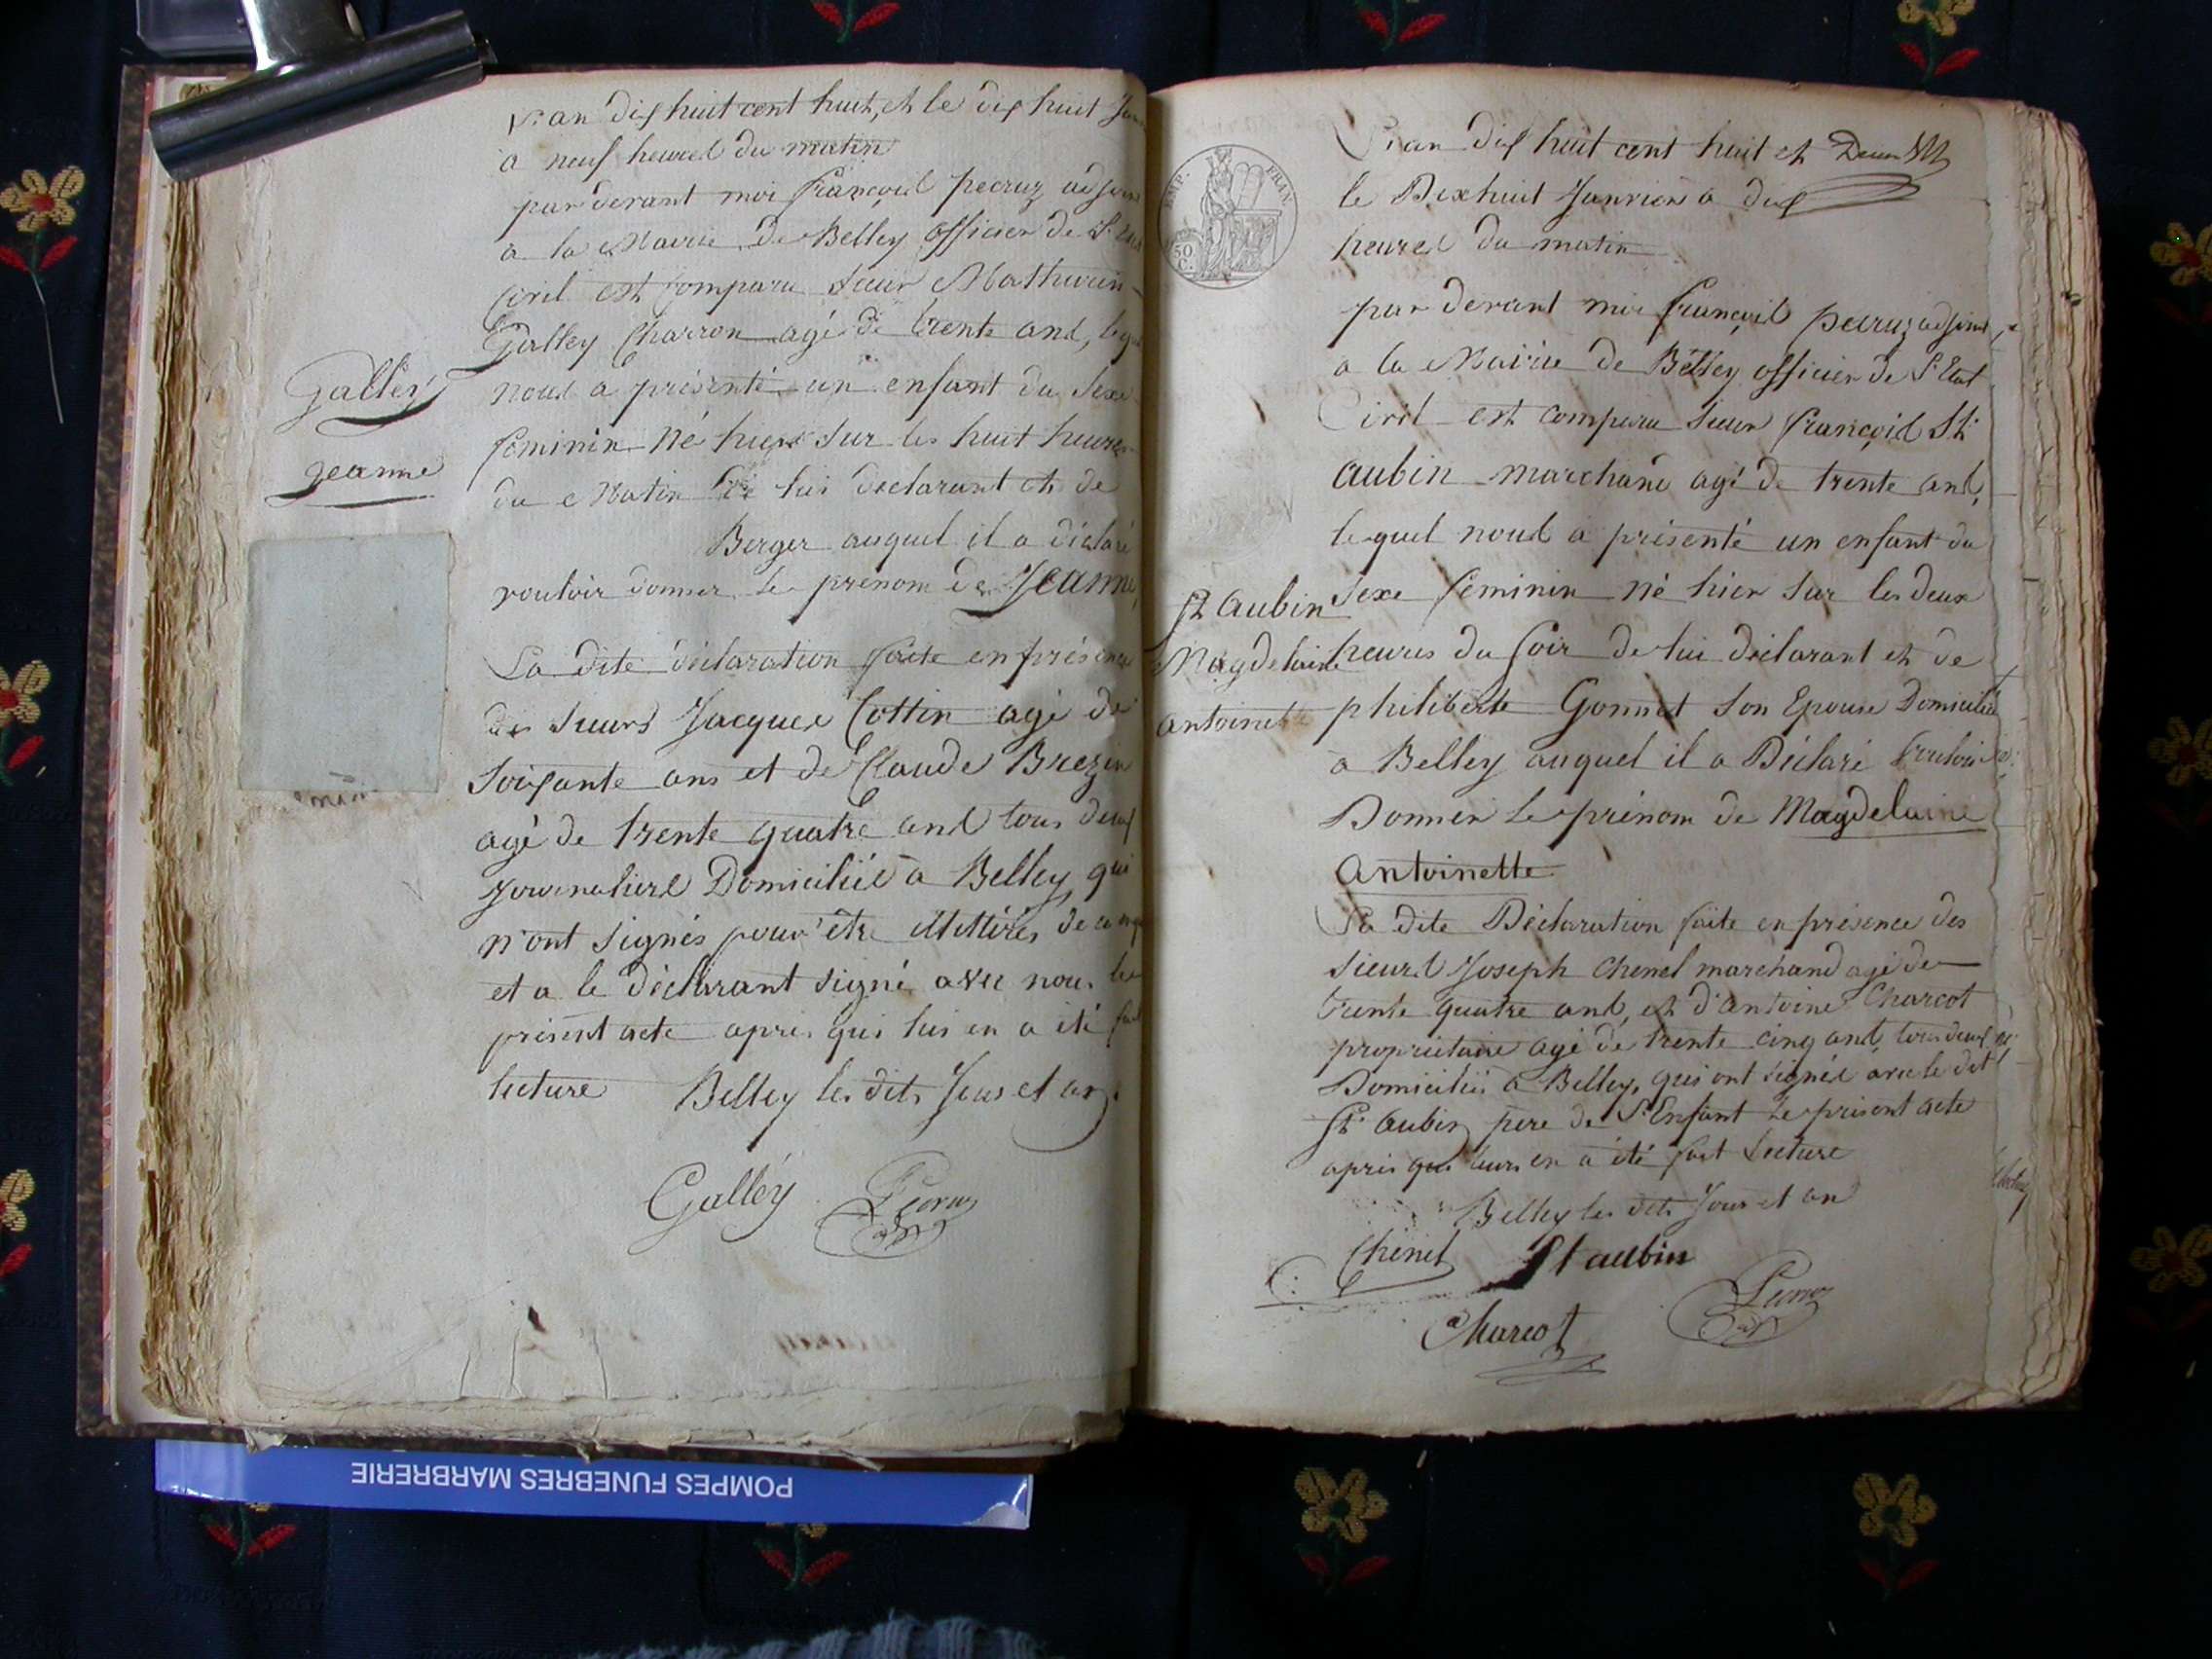 L'an dix huit cent huit, et le dix huit
a neuf heures du matin
par devant moi françois pecruz
a la Mairie de Belley officier de
Civil est Comparu sieur Mathurin
Galley Charron agé de trente ans,
Galley
nous a présenté un enfant du Sexe
feminin Né hier sur les huit heures
Jeanne
du Matin de lui declarant et de
Berger auquel il a déclaré
vouloir donner le prénom de Jeanne
La dite déclaration faite en présence
des Sieurs Jacques Cottin agé de
Soixante ans et de Claude Brezin
agé de trente quatre ans tous deux
Journaliers Domiciliés a Belley, qui
n'ont signés pour être illettirés de ce
et a le déclarant signé avec nous le
présent acte apres qui lui en a été
lecture Belley les dits Jour et an
Galley Pecruz
POMPES FUNEBRES MARBRERIE
EMP. FRAN.
50 C.
L'an dix huit cent huit et
le Dixhuit Janvier a dix
heures du matin
par devant moi françois pecruz adjoint
a la Mairie de Belley officier de l'Etat
Civil est comparu sieur françois St
aubin marchand agé de trente ans,
lequel nous a présenté un enfant du
St Aubin
Sexe feminin né hier sur les deux
Magdelaine
heures du soir de lui déclarant et de
antoinette
philiberte Gonnet Son Epouse Domiciliés
a Belley auquel il a Déclaré Vouloir
Donner le prénom de Magdelaine
Antoinette
La dite Déclaration faite en présence des
Sieurs Joseph Chenel marchand agé de
trente quatre ans, et d'antoine Charcot
propriétaire agé de trente cinq ans, tous deux
Domiciliés a Belley, qui ont signés avec le dit
St Aubin père de l'Enfant le présent acte
après que leurs en a été fait Lecture
Belley les dits Jour et an
Chenel St aubin
Charcot Pecruz